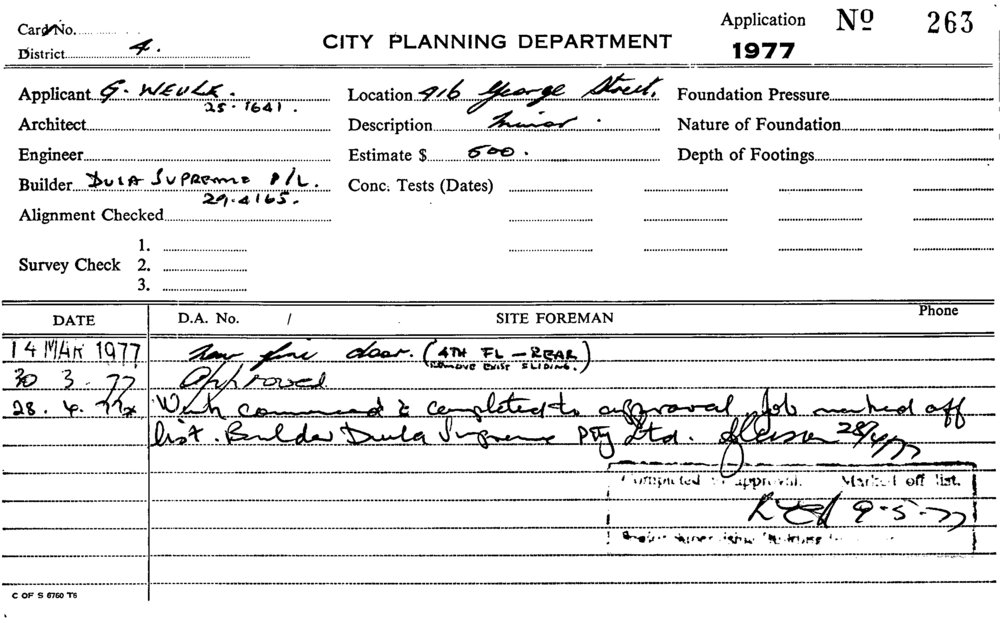 Card No.
Application No 263
District 4.
CITY PLANNING DEPARTMENT
1977
Applicant G. WEULE.
25.1641.
Location 416 George Street.
Foundation Pressure
Architect
Description Minor.
Nature of Foundation
Engineer
Estimate $ 500.
Depth of Footings
Builder DULA SUPREME P/L.
29.4165.
Conc. Tests (Dates)
Alignment Checked
1.
Survey Check 2.
3.
DATE D.A. No. / SITE FOREMAN Phone
14 MAR 1977 New fire door. (4TH FL - REAR)
(REMOVE EXIST SLIDING.)
30 3. 77 Approved
28. 4. 77 Work commenced & completed to approval Job marked off
list. Builder Dula Supreme Pty Ltd. 28/4/77
Completed to approval. Marked off list.
9-5-77
C OF S 6760 T6